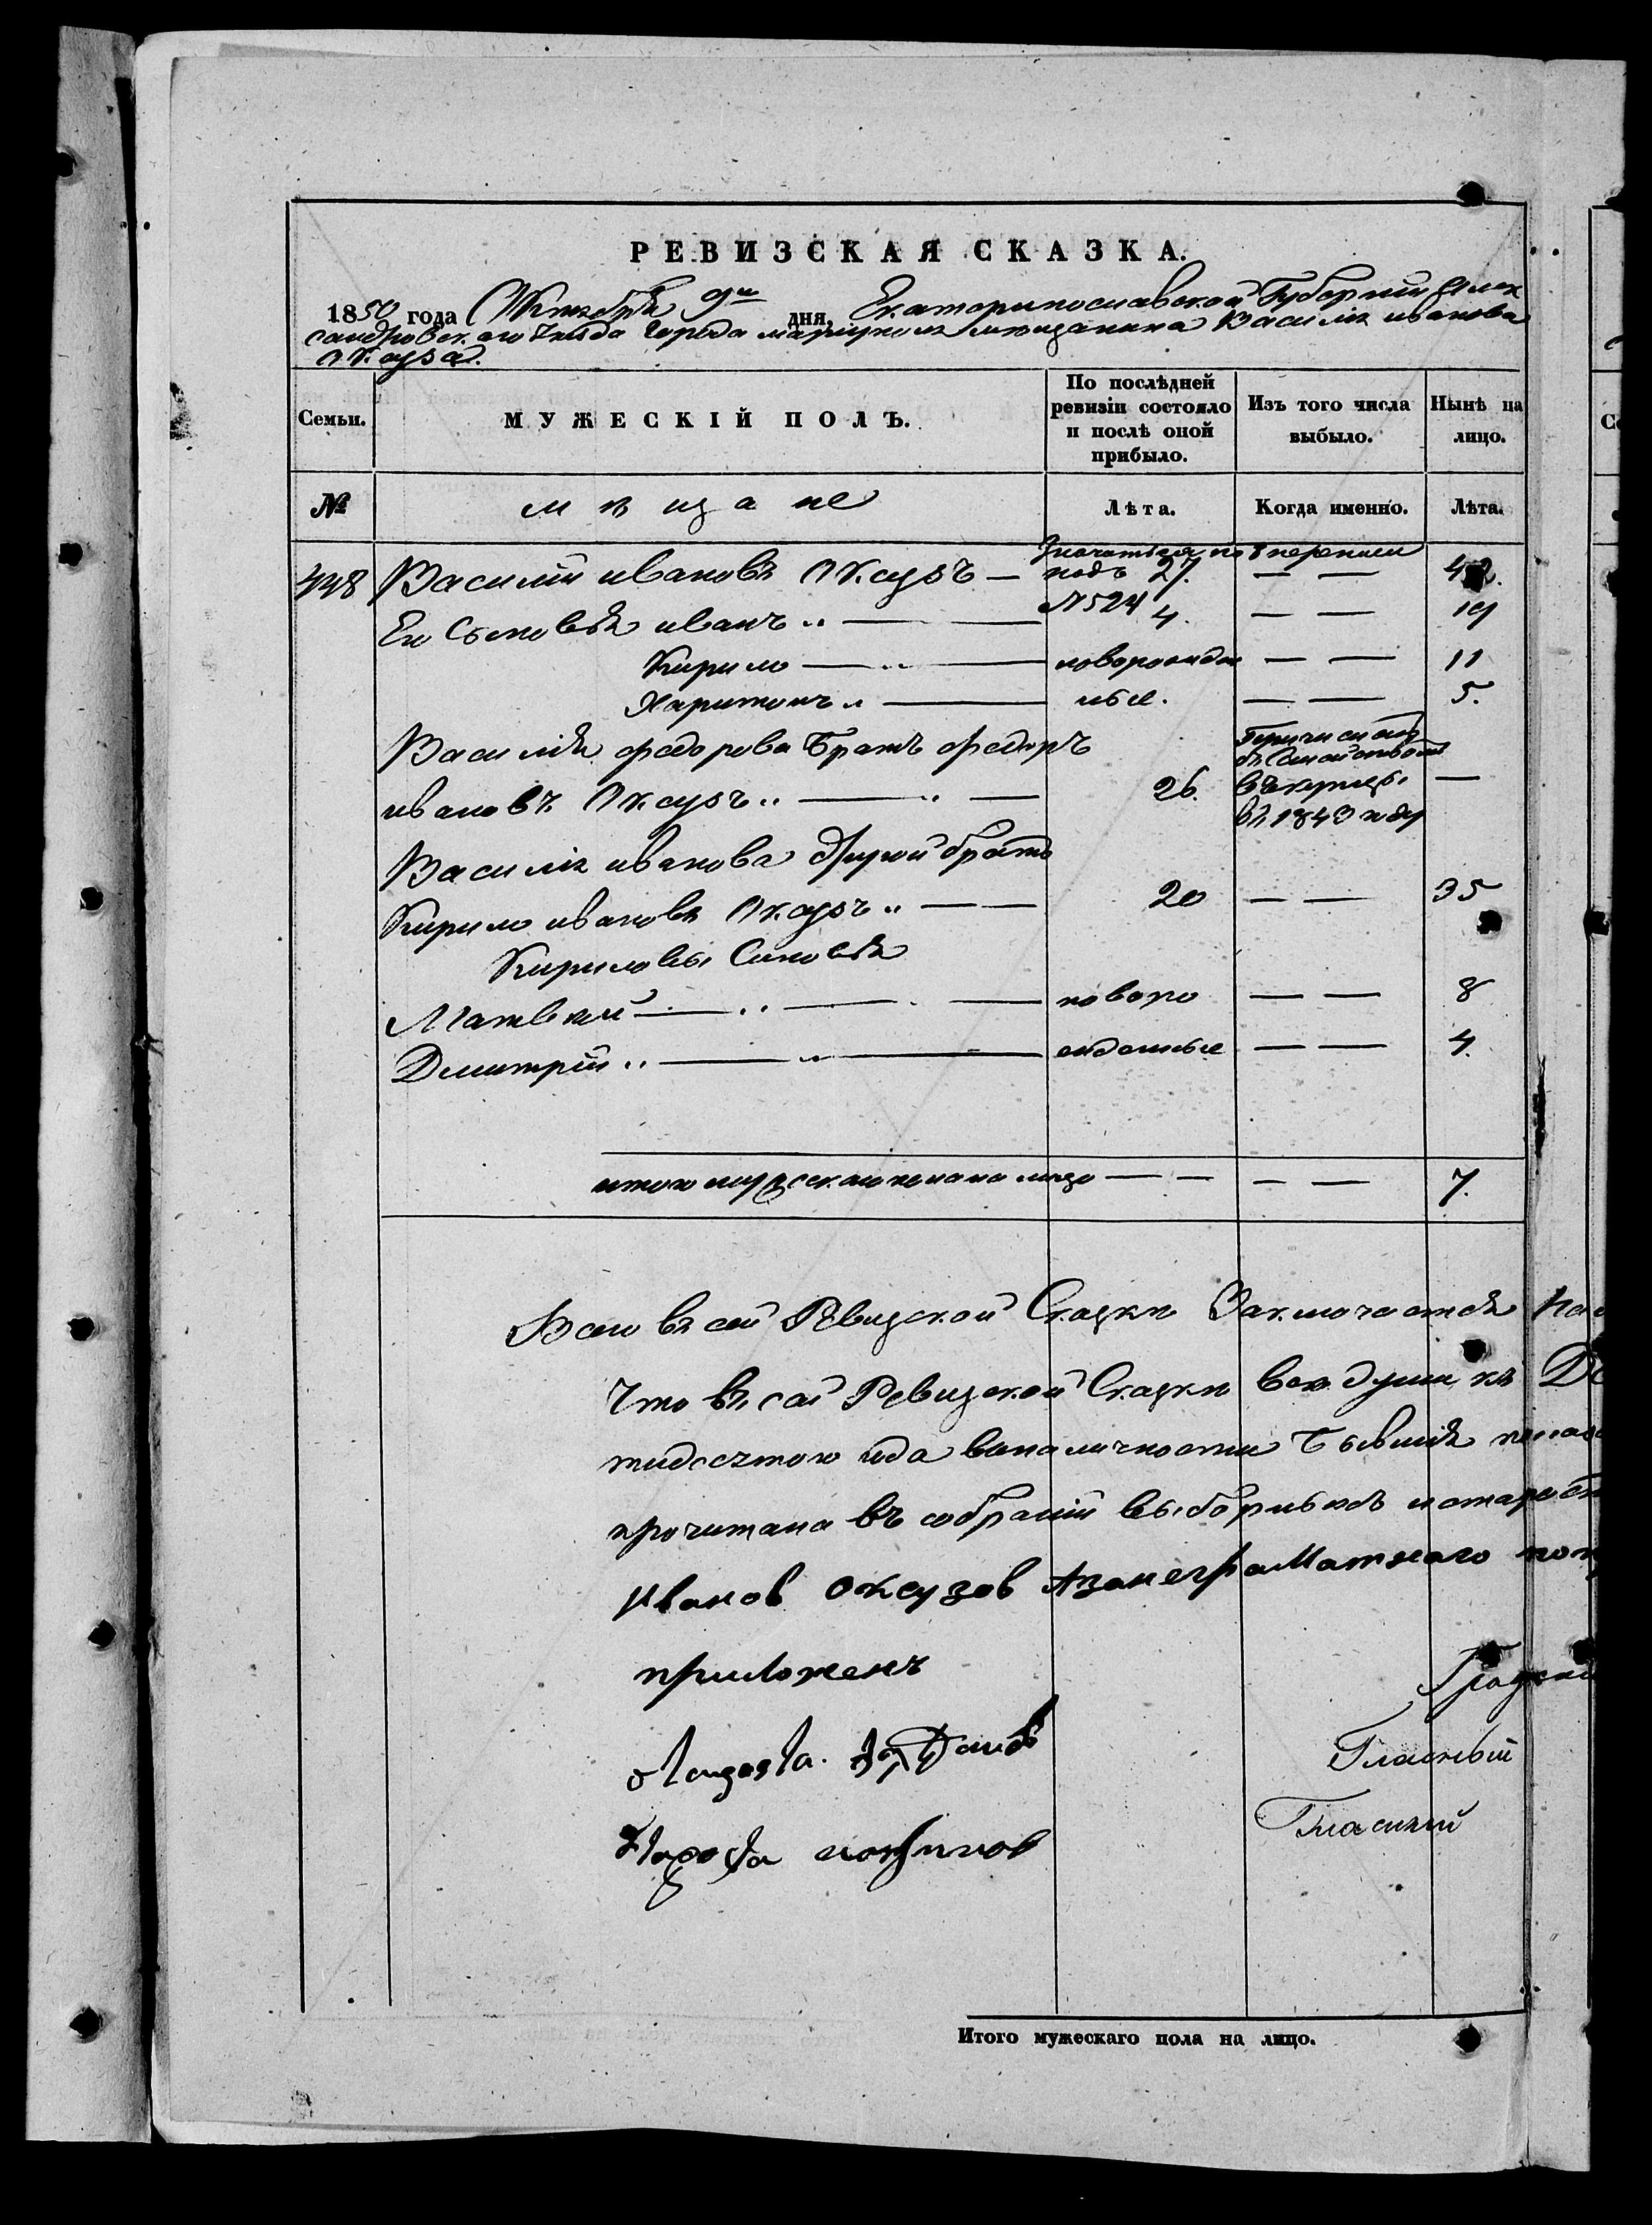 РЕВИЗСКАЯ СКАЗКА.
1850 года Октября 9го дня, Екатеринославской Губернии Алек
сандровскаго Уезда города мариуполя мещанина Василия иванова
Оксуза.
Семьи.
МУЖЕСКІЙ ПОЛЪ.
По послѣдней
ревизіи состояло
и послѣ оной
прибыло.
Изъ того числа
выбыло.
Нынѣ на
лицо.
№
мѣщане
Лѣта.
Когда именно.
Лѣта.
Значиться по 8 переписи
448 Василий ивановъ Оксузъ — подъ 27. — — 42.
Его Сыновья иванъ „ — №524 4. — — 19
Кирило — „ — новорожден — — 11
Харитонъ „ — ные. — — 5.
Василия федорова Братъ федоръ
ивановъ Оксузъ „ — „ — 26.
въ купцы
въ 1843 году
—
Василия иванова другой братъ
Кирило ивановъ Оксузъ „ — — 20 — — 35
Кириловы Сыновья
Матвей — „ — новоро — — 8
Дмитрій „ — „ — жденные — — 4.
итого мужескаго пола на лицо — — — — 7.
Всего въ сей Ревизской Сказки Заключается На
Что въ сей Ревизской Сказки все души къ Де
тидесятого года в наличности Бывшия
прочитана въ собраніи выборныхъ и старост
Иванов оксузов Азанеграматнаго
приложенъ
Градски
Гласный
Гласный
Староста
Итого мужескаго пола на лицо.